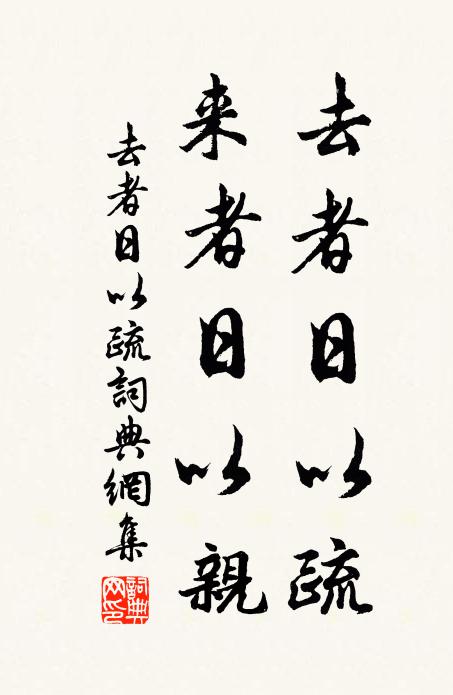 去者日以疏
来者日以親
去者日以疏詞典網集
詞典
网印